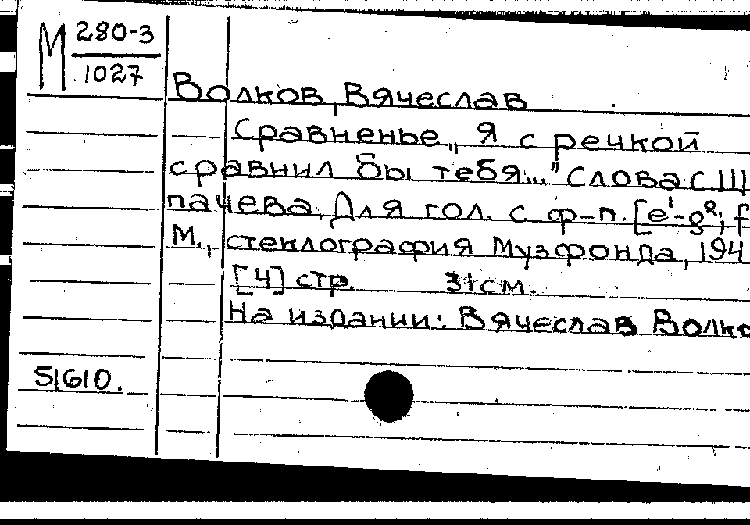 М 280-3
1027
Волков, Вячеслав
Сравненье „Я с речкой
сравнил бы тебя..." Слова С. Щ
пачева. Для гол. с ф-п. [e¹-g²; f
М., стеклография Музфонда, 194
[4] стр. 31 см.
На издании: Вячеслав Волко
51610.